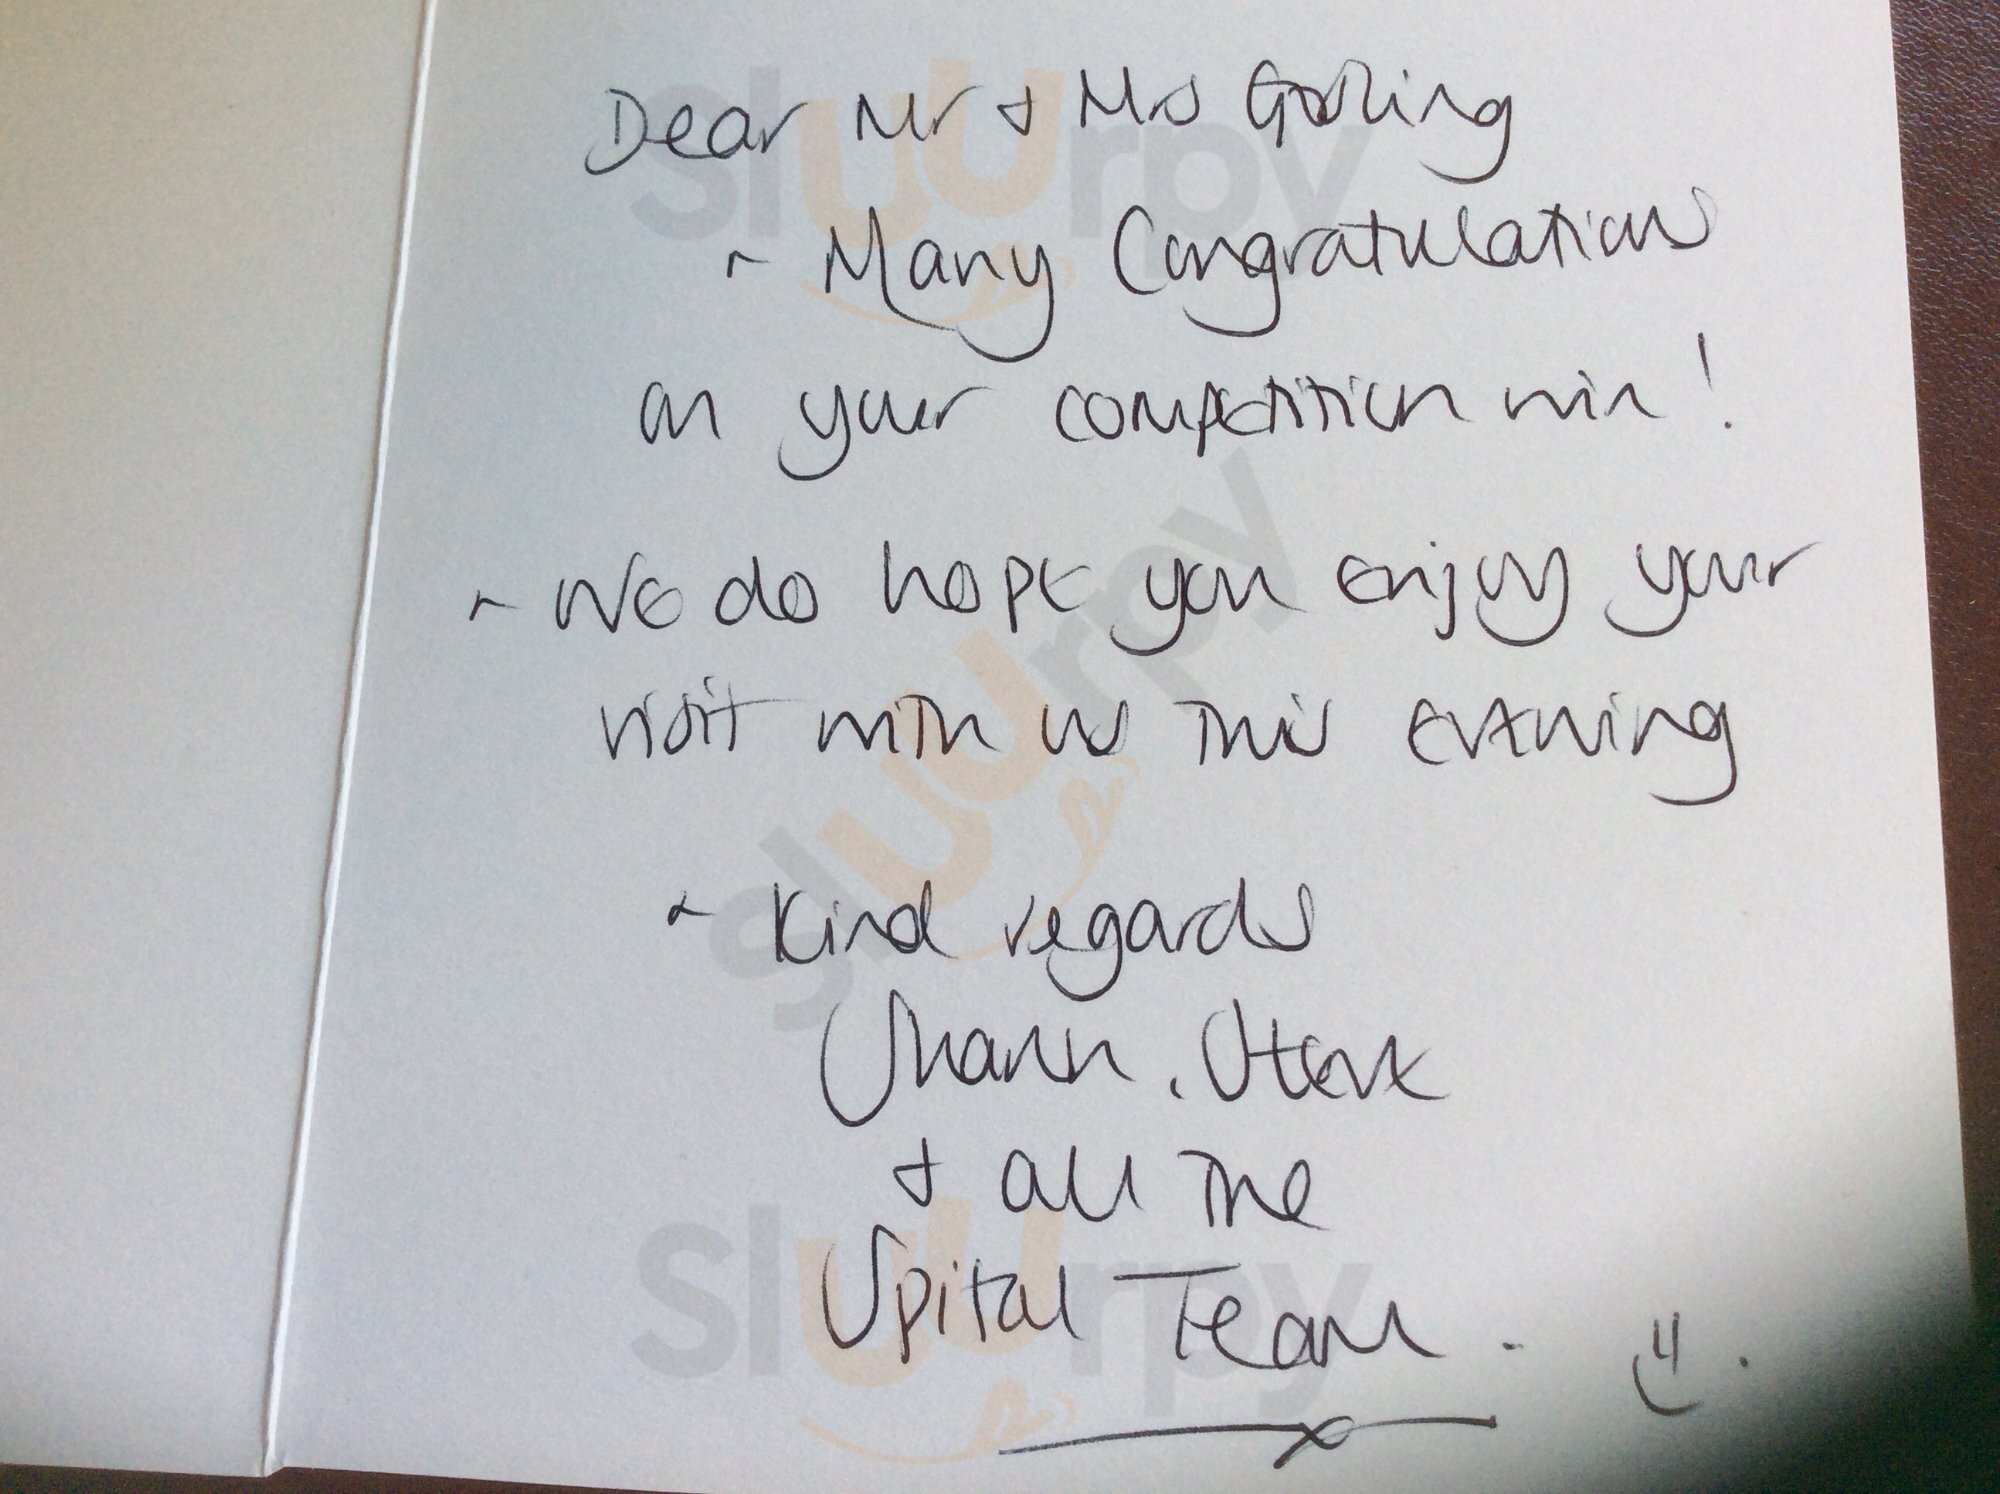 Dear Mr + Mrs Gosling
~ Many Congratulations
on your competition win!
~ We do hope you enjoy your
visit with us this evening
~ Kind regards
Shann. Steve
+ all the
Spital Team.